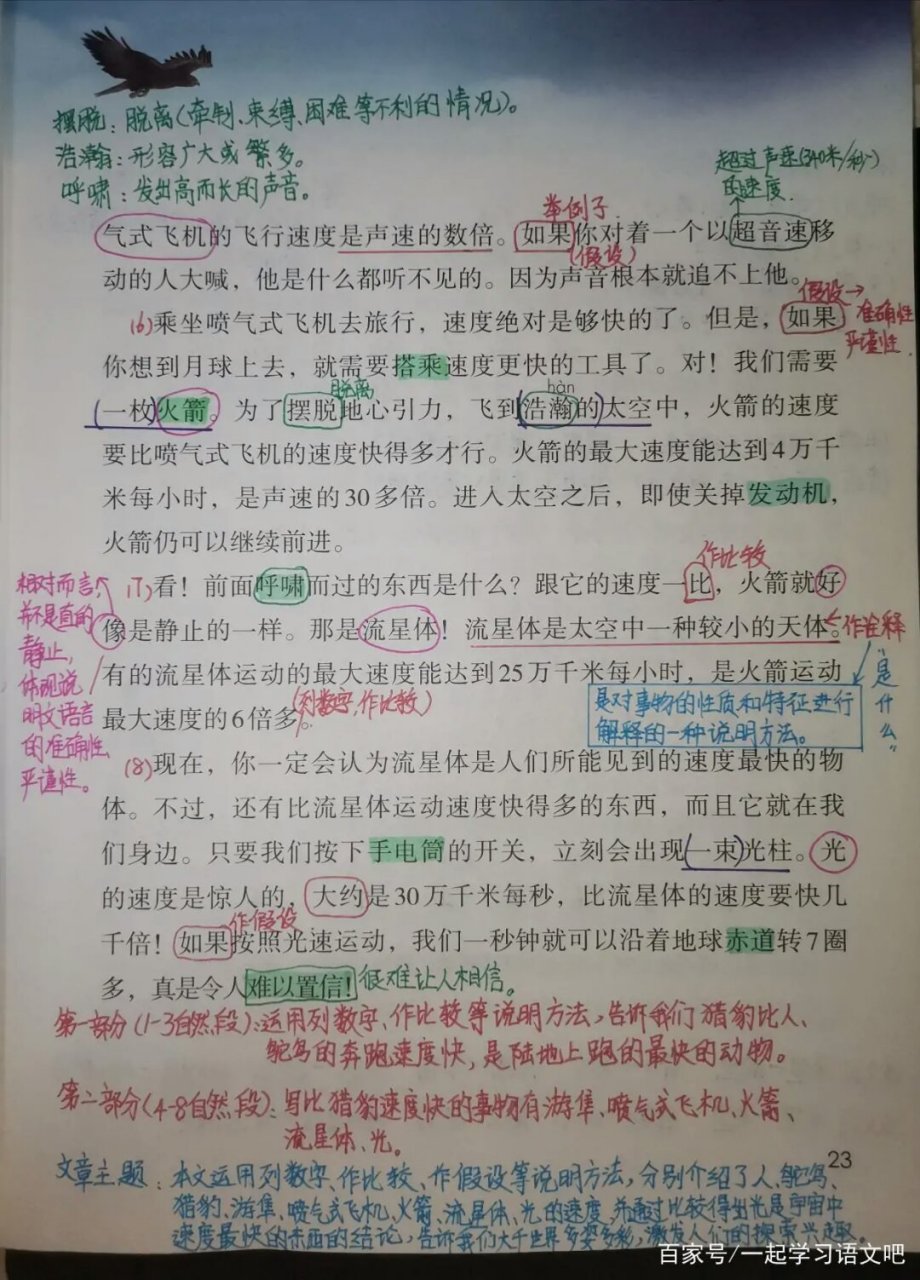 摆脱：脱离（牵制、束缚、困难等不利的情况）。
浩瀚：形容广大或繁多。
呼啸：发出高而长的声音。
超过声速（340米/秒）
的速度
举例子
气式飞机的飞行速度是声速的数倍。如果你对着一个以超音速移
（假设）
动的人大喊，他是什么都听不见的。因为声音根本就追不上他。
假设→
准确性
严谨性
(6)乘坐喷气式飞机去旅行，速度绝对是够快的了。但是，如果
你想到月球上去，就需要搭乘速度更快的工具了。对！我们需要
脱离
hàn
(一枚)火箭。为了摆脱地心引力，飞到(浩瀚的)太空中，火箭的速度
要比喷气式飞机的速度快得多才行。火箭的最大速度能达到4万千
米每小时，是声速的30多倍。进入太空之后，即使关掉发动机，
火箭仍可以继续前进。
作比较
(7)看！前面呼啸而过的东西是什么？跟它的速度一比，火箭就好
像是静止的一样。那是流星体！流星体是太空中一种较小的天体。
作诠释
有的流星体运动的最大速度能达到25万千米每小时，是火箭运动
最大速度的6倍多。
(列数字,作比较)
相对而言,
并不是真的
静止,
体现说
明文语言
的准确性
严谨性。
"是什么"
是对事物的性质和特征进行
解释的一种说明方法。
(8)现在，你一定会认为流星体是人们所能见到的速度最快的物
体。不过，还有比流星体运动速度快得多的东西，而且它就在我
们身边。只要我们按下手电筒的开关，立刻会出现(一束)光柱。光
的速度是惊人的，大约是30万千米每秒，比流星体的速度要快几
作假设
千倍！如果按照光速运动，我们一秒钟就可以沿着地球赤道转7圈
多，真是令人难以置信！
很难让人相信。
第一部分(1-3自然段):运用列数字、作比较等说明方法，告诉我们猎豹比人、
鸵鸟的奔跑速度快，是陆地上跑的最快的动物。
第二部分(4-8自然段):写比猎豹速度快的事物有游隼、喷气式飞机、火箭、
流星体、光。
23
文章主题：本文运用列数字、作比较、作假设等说明方法，分别介绍了人、鸵鸟、
猎豹、游隼、喷气式飞机、火箭、流星体、光的速度，并通过比较得出光是宇宙中
速度最快的东西的结论，告诉我们大千世界多姿多彩，激发人们的探索兴趣。
百家号/一起学习语文吧